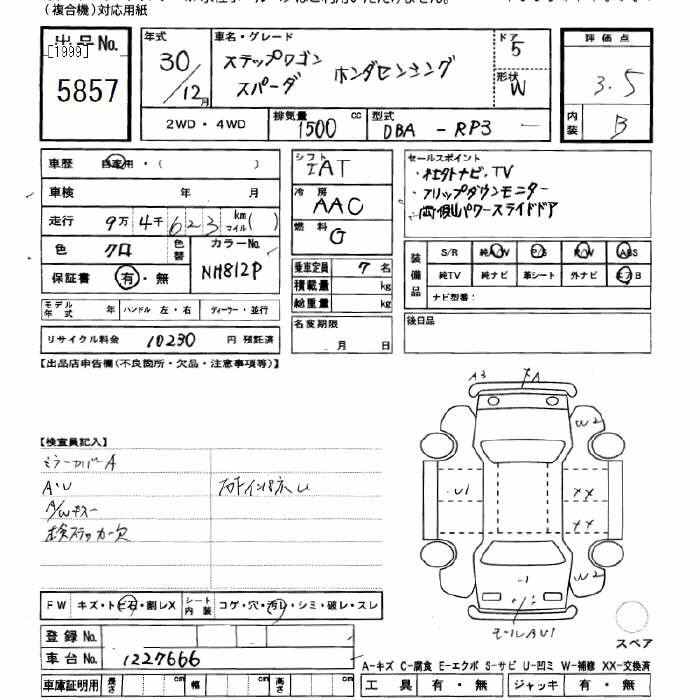 (複合機)対応用紙
出品No.
[1999]
5857
年式
30/12月
車名・グレード
ステップワゴン
スパーダ ホンダセンシング
ドア
5
形状
W
評価点
3.5
内装
B
2WD・4WD
排気量
1500 cc
型式
DBA - RP3
車歴 自家用・( )
車検 年 月
走行 9万4千623 km マイル( )
色 クロ 色替
カラーNo.
NH812P
保証書 有・無
モデル年式 年 ハンドル 左・右 ディーラー・並行
リサイクル料金 10230 円 預託済
シフト
IAT
冷房
AAC
燃料
G
乗車定員 7 名
積載量 kg
総重量 kg
名変期限
月 日
セールスポイント
・社外ナビ、TV
・フリップダウンモニター
・両側パワースライドドア
装備品
S/R 純A/W P/S P/W ABS
純TV 純ナビ 革シート 外ナビ エアB
ナビ型番:
後日品
【出品店申告欄(不良箇所・欠品・注意事項等)】
【検査員記入】
ミラーカバーA
A・U
A/Wキズ
検ステッカー欠
A3
XA
W2
U1
XX
XX
W2
モールAU1
スペア
FW キズ・トビ石・割レX
シート内装 コゲ・穴・汚レ・シミ・破レ・スレ
登録No.
車台No. 1227666
車庫証明用 長さ cm 幅 cm 高さ cm
A-キズ C-腐食 E-エクボ S-サビ U-凹ミ W-補修 XX-交換済
工具 有・無 ジャッキ 有・無